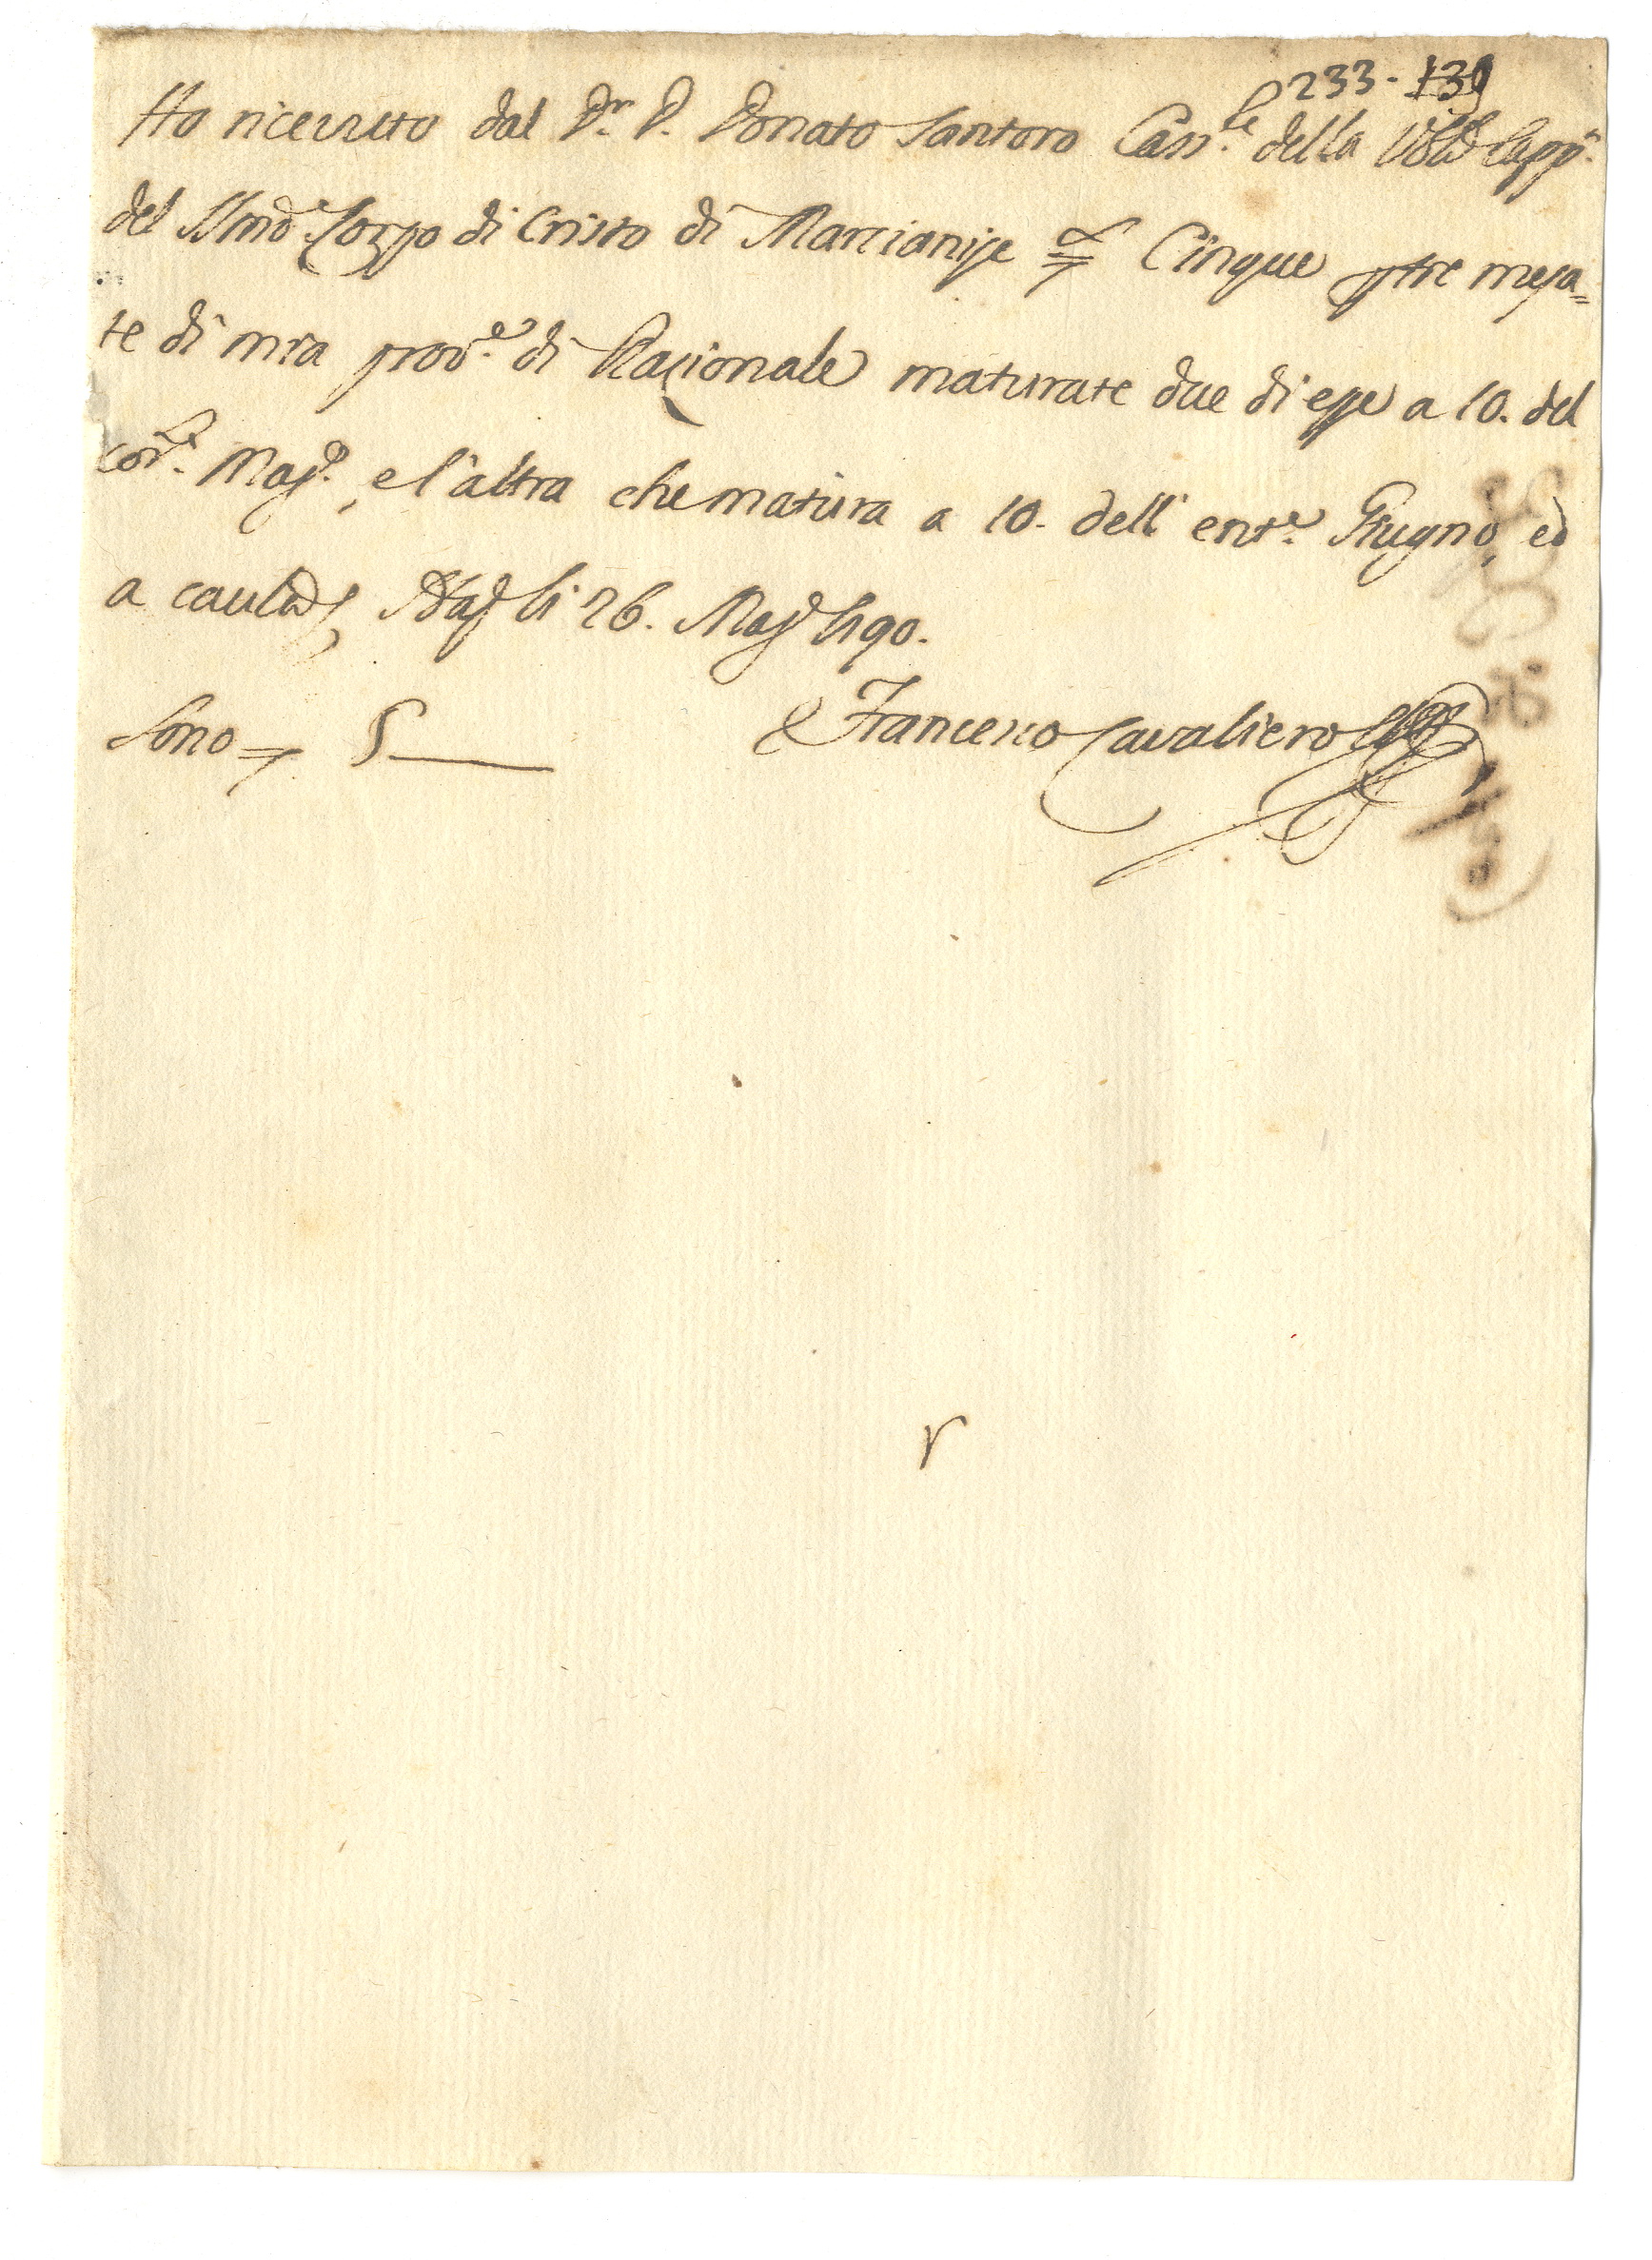 233 - 139
Ho ricevuto dal Dr. D. Donato Santoro Cass.le della Ven.le Capp.a
del SSmo Corpo di Cristo di Marcianise Cinque p tre mesa=
te di mia prov.e di Razionale maturate due di esse a 10. del
cor.e Mag.o, e l'altra che matura a 10. dell' ent.e Giugno, ed
a cautela Nap. li 26. Mag. 1790.
Sono 5
Francesco Cavaliero